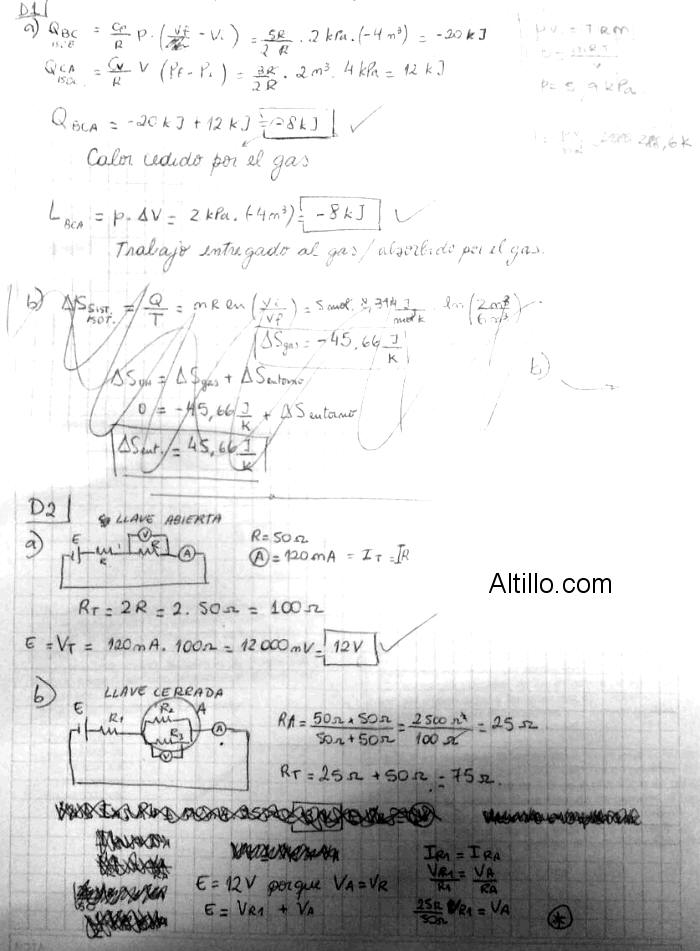 D1
a) Q_BC = Cp/R p · (Vf - Vi) = 5R/2R · 2 kPa · (-4 m³) = -20 kJ
Q_CA = Cv/R V (Pf - Pi) = 3R/2R · 2 m³ · 4 kPa = 12 kJ
Q_BCA = -20 kJ + 12 kJ = -8 kJ
Calor cedido por el gas
L_BCA = p · ΔV = 2 kPa · (-4 m³) = -8 kJ
Trabajo entregado al gas / absorbido por el gas.
b) ΔS SIST. ISOT. = Q/T = n R ln (Vi/Vf) = 5 mol · 8,314 J/mol K ln (2m³/6m³)
ΔSgas = -45,66 J/K
b)
ΔSun = ΔSgas + ΔSentorno
0 = -45,66 J/K + ΔSentorno
ΔSent. = 45,66 J/K
D2
LLAVE ABIERTA
a) E R V R A
R = 50Ω
A = 120mA = I_T = I_R
R_T = 2R = 2 . 50Ω = 100Ω
E = V_T = 120mA . 100Ω = 12000mV = 12V
Altillo.com
b) LLAVE CERRADA
E R1 R2 R3 V A A
R_A = 50Ω x 50Ω / 50Ω + 50Ω = 2500Ω² / 100Ω = 25Ω
R_T = 25Ω + 50Ω = 75Ω.
E = 12V porque V_A = V_R
E = V_R1 + V_A
I_R1 = I_RA
V_R1/R1 = V_A/R_A
V_R1 = V_A
*